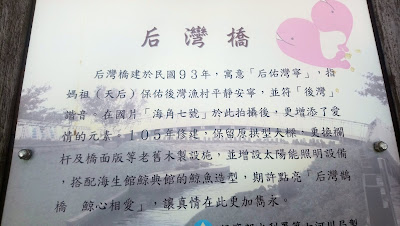 后灣橋
后灣橋建於民國93年，寓意「后佑灣寧」，指
媽祖（天后）保佑後灣漁村平靜安寧，並符「後灣」
諧音。在國片「海角七號」於此拍攝後，更增添了愛
情的元素。105年修建，保留原拱型大樑，更換欄
杆及橋面版等老舊木製設施，並增設太陽能照明設備
，搭配海生館鯨典館的鯨魚造型，期許點亮「后灣鵲
橋　鯨心相愛」，讓真情在此更加雋永。